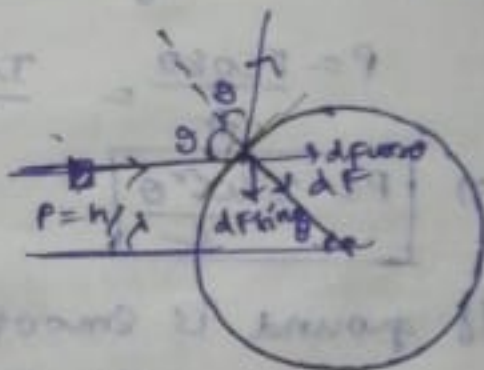 θ
θ
dFcosθ
dF
P = h/λ
dFsinθ
θ